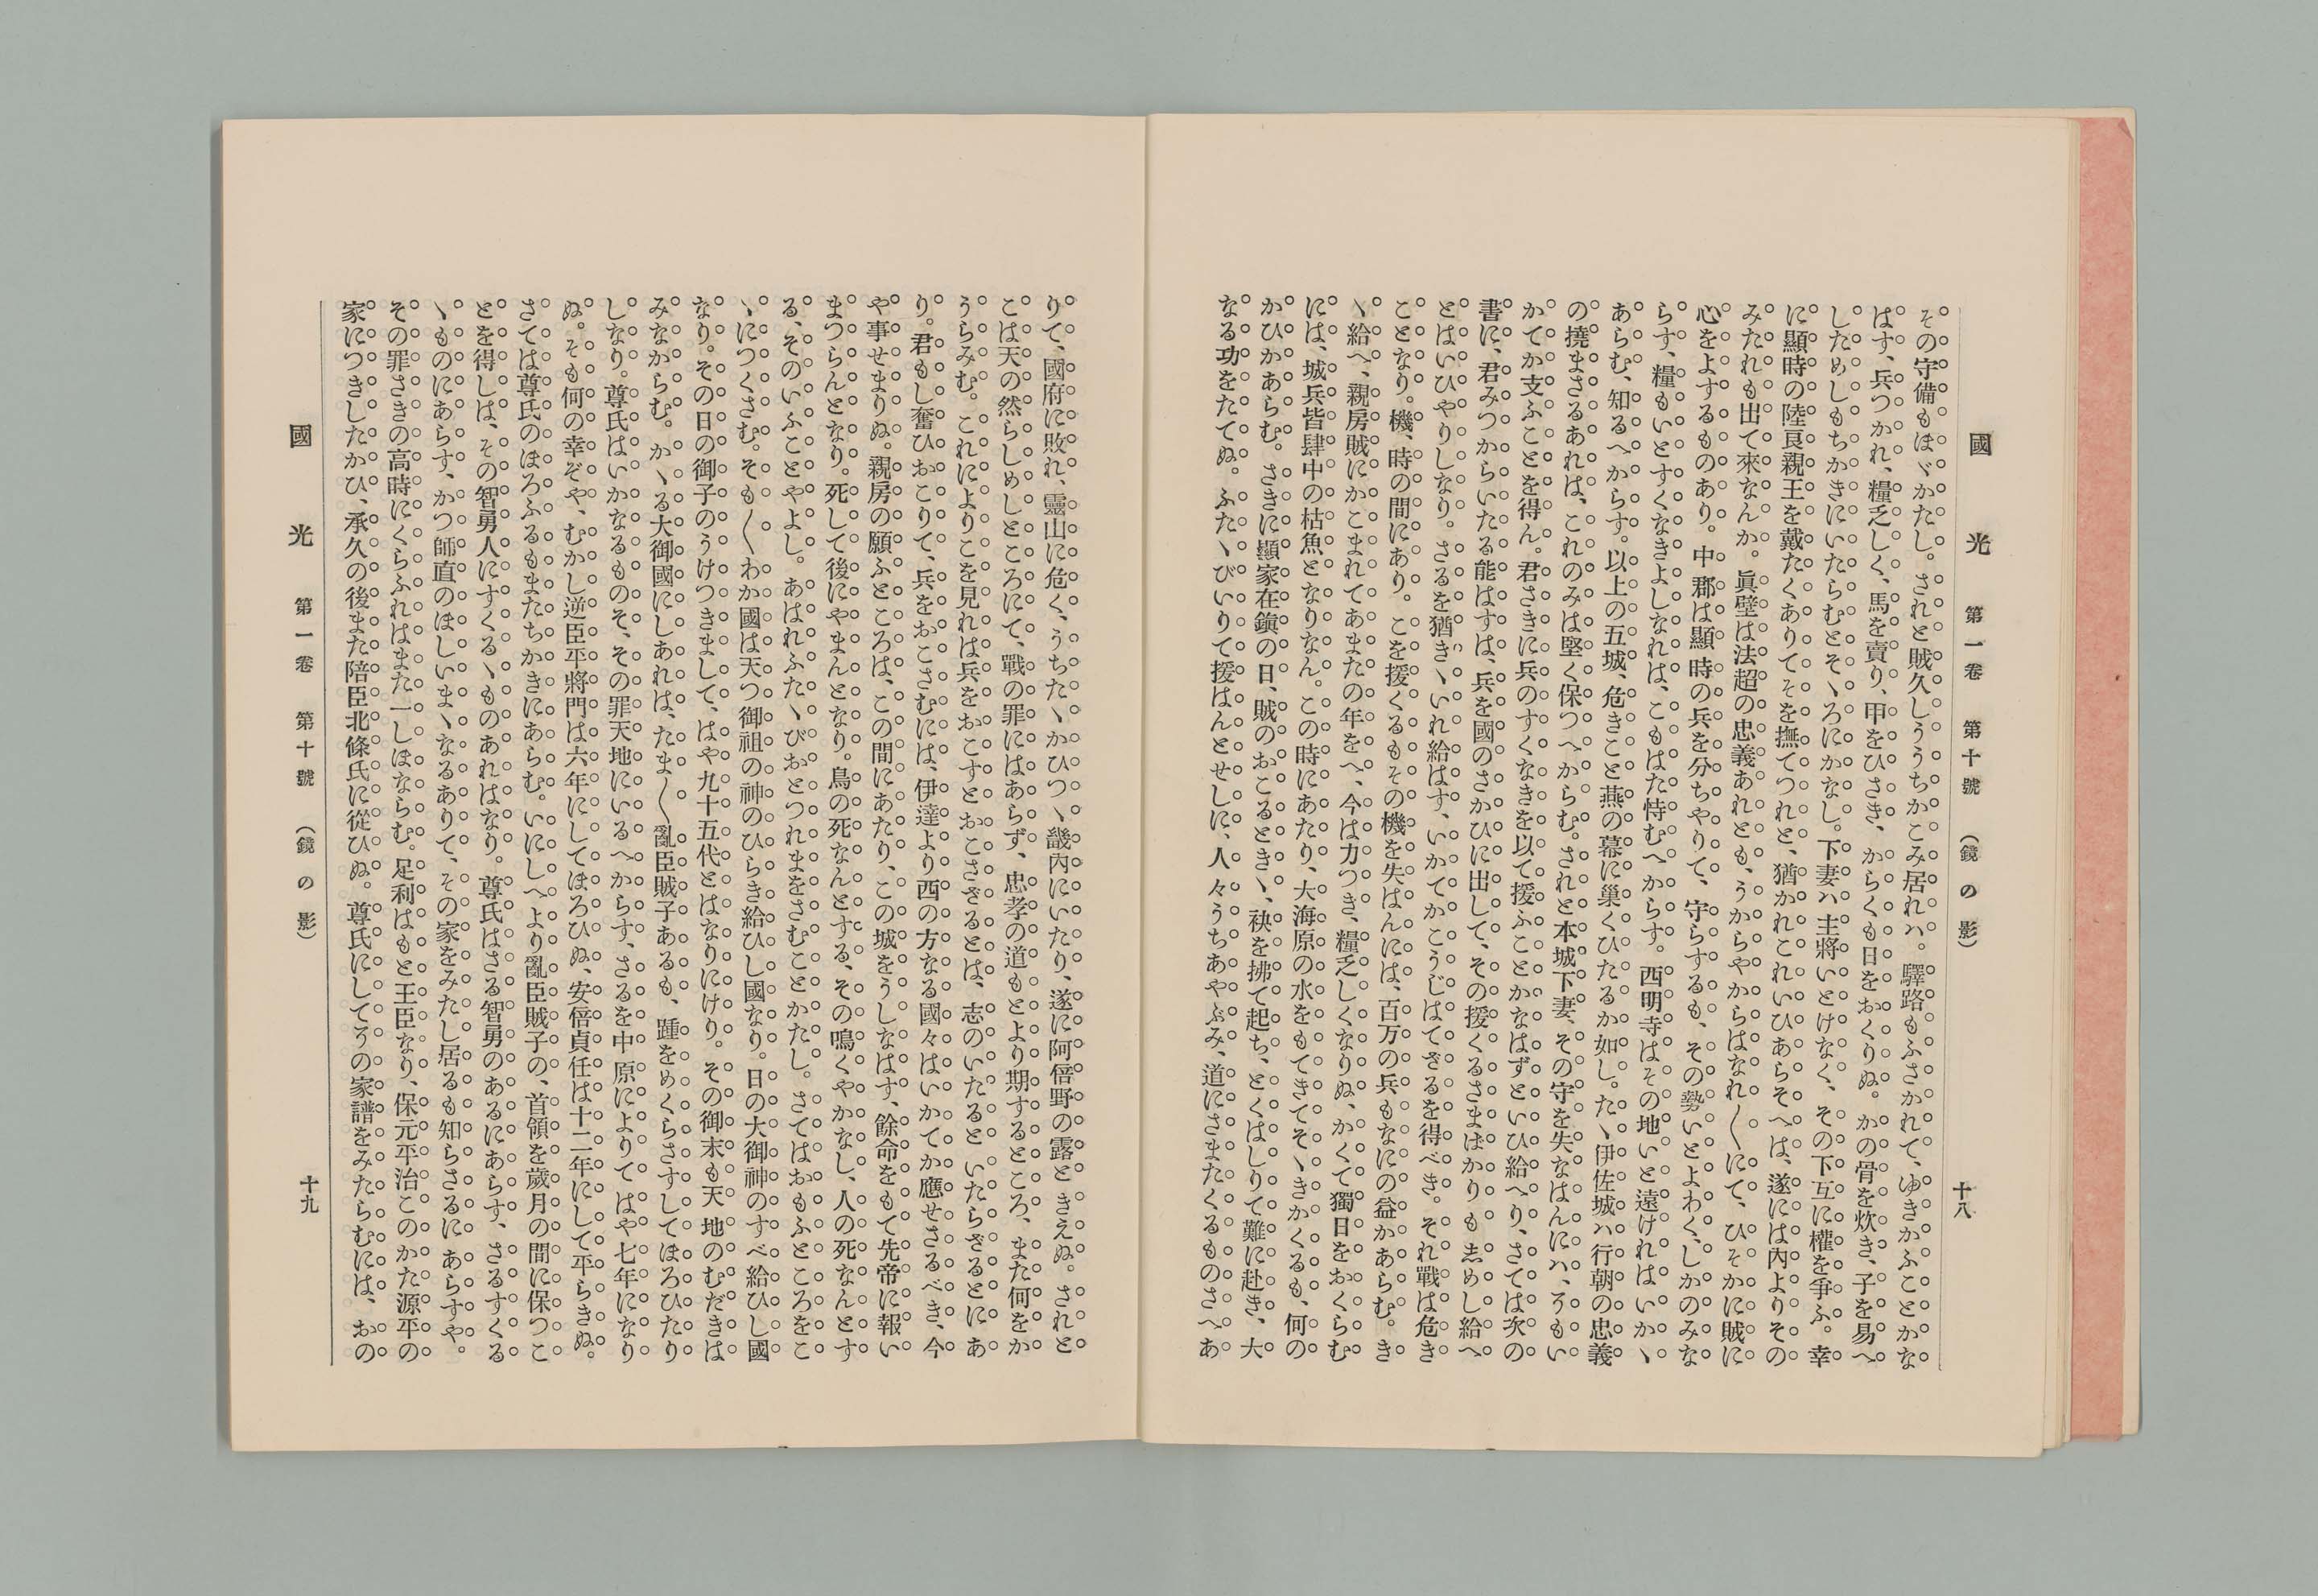 國光 第一卷 第十號 (鏡の影) 十八
その守備もほゞかたし。されと賊久しううちかこみ居れハ。驛路もふさかれて、ゆきかふことかな
はす、兵つかれ、糧乏しく、馬を賣り、甲をひさき、からくも日をおくりぬ。かの骨を炊き、子を易へ
しためしもちかきにいたらむとそヽろにかなし。下妻ハ主將いとけなく、その下互に權を爭ふ。幸
に顯時の陸良親王を戴たくありてそを撫てつれと、猶かれこれいひあらそへは、遂には內よりその
みたれも出て來なんか。眞壁は法超の忠義あれとも、うからやからはなれ〱にて、ひそかに賊に
心をよするものあり。中郡は顯時の兵を分ちやりて、守らするも、その勢いとよわく、しかのみな
らす、糧もいとすくなきよしなれは、こもはた恃むへからす。西明寺はその地いと遠けれはいかヽ
あらむ、知るへからす。以上の五城、危きこと燕の幕に巢くひたるか如し。たヽ伊佐城ハ行朝の忠義
の撓まさるあれは、これのみは堅く保つへからむ。されと本城下妻、その守を失なはんにハ、そもい
かてか支ふことを得ん。君さきに兵のすくなきを以て援ふことかなはずといひ給へり、さては次の
書に、君みつからいたる能はすは、兵を國のさかひに出して、その援くるさまはかりも志めし給へ
とはいひやりしなり。さるを猶きヽいれ給はす、いかてかこうじはてざるを得べき。それ戰は危き
ことなり。機、時の間にあり。こを援くるもその機を失はんには、百万の兵もなにの益かあらむ。き
ヽ給へ、親房賊にかこまれてあまたの年をへ、今は力つき、糧乏しくなりぬ、かくて獨日をおくらむ
には、城兵皆肆中の枯魚となりなん。この時にあたり、大海原の水をもてきてそヽきかくるも、何の
かひかあらむ。さきに顯家在鎭の日、賊のおこるときヽ、袂を拂て起ち、とくはしりて難に赴き、大
なる功をたてぬ。ふたヽびいりて援はんとせしに、人々うちあやぶみ、道にさまたくるものさへあ
りて、國府に敗れ、靈山に危く、うちたヽかひつヽ畿內にいたり、遂に阿倍野の露ときえぬ。されと
こは天の然らしめしところにて、戰の罪にはあらず、忠孝の道もとより期するところ、また何をか
うらみむ。これによりこを見れは兵をおこすとおこさざるとは、志のいたるといたらざるとにあ
り。君もし奮ひおこりて、兵をおこさむには、伊達より西の方なる國々はいかてか應せさるべき、今
や事せまりぬ。親房の願ふところは、この間にあたり、この城をうしなはす、餘命をもて先帝に報い
まつらんとなり。死して後にやまんとなり。鳥の死なんとする、その鳴くやかなし、人の死なんとす
る、そのいふことやよし。あはれふたヽびおとつれまをさむことかたし。さてはおもふところをこ
ヽにつくさむ。そも〱わか國は天つ御祖の神のひらき給ひし國なり。日の大御神のすべ給ひし國
なり。その日の御子のうけつきまして、はや九十五代とはなりにけり。その御末も天地のむだきは
みなからむ。かヽる大御國にしあれは、たま〱亂臣賊子あるも、踵をめくらさすしてほろひたり
しなり。尊氏はいかなるものそ、その罪天地にいるへからす、さるを中原によりてはや七年になり
ぬ。そも何の幸ぞや、むかし逆臣平將門は六年にしてほろひぬ、安倍貞任は十二年にして平らきぬ。
さては尊氏のほろふるもまたちかきにあらむ。いにしへより亂臣賊子の、首領を歲月の間に保つこ
とを得しは、その智勇人にすくるヽものあれはなり。尊氏はさる智勇のあるにあらす、さるすくる
ヽものにあらす、かつ師直のほしいまヽなるありて、その家をみたし居るも知らさるにあらすや。
その罪さきの高時にくらふれはまた一しほならむ。足利はもと王臣なり、保元平治このかた源平の
家につきしたかひ、承久の後また陪臣北條氏に從ひぬ。尊氏にしてその家譜をみたらむには、おの
國光 第一卷 第十號 (鏡の影) 十九